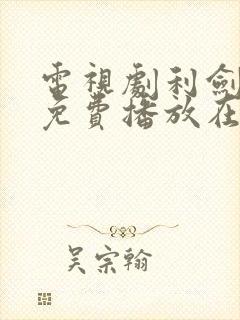 電視劇利劍
免費播放在
吴宗翰